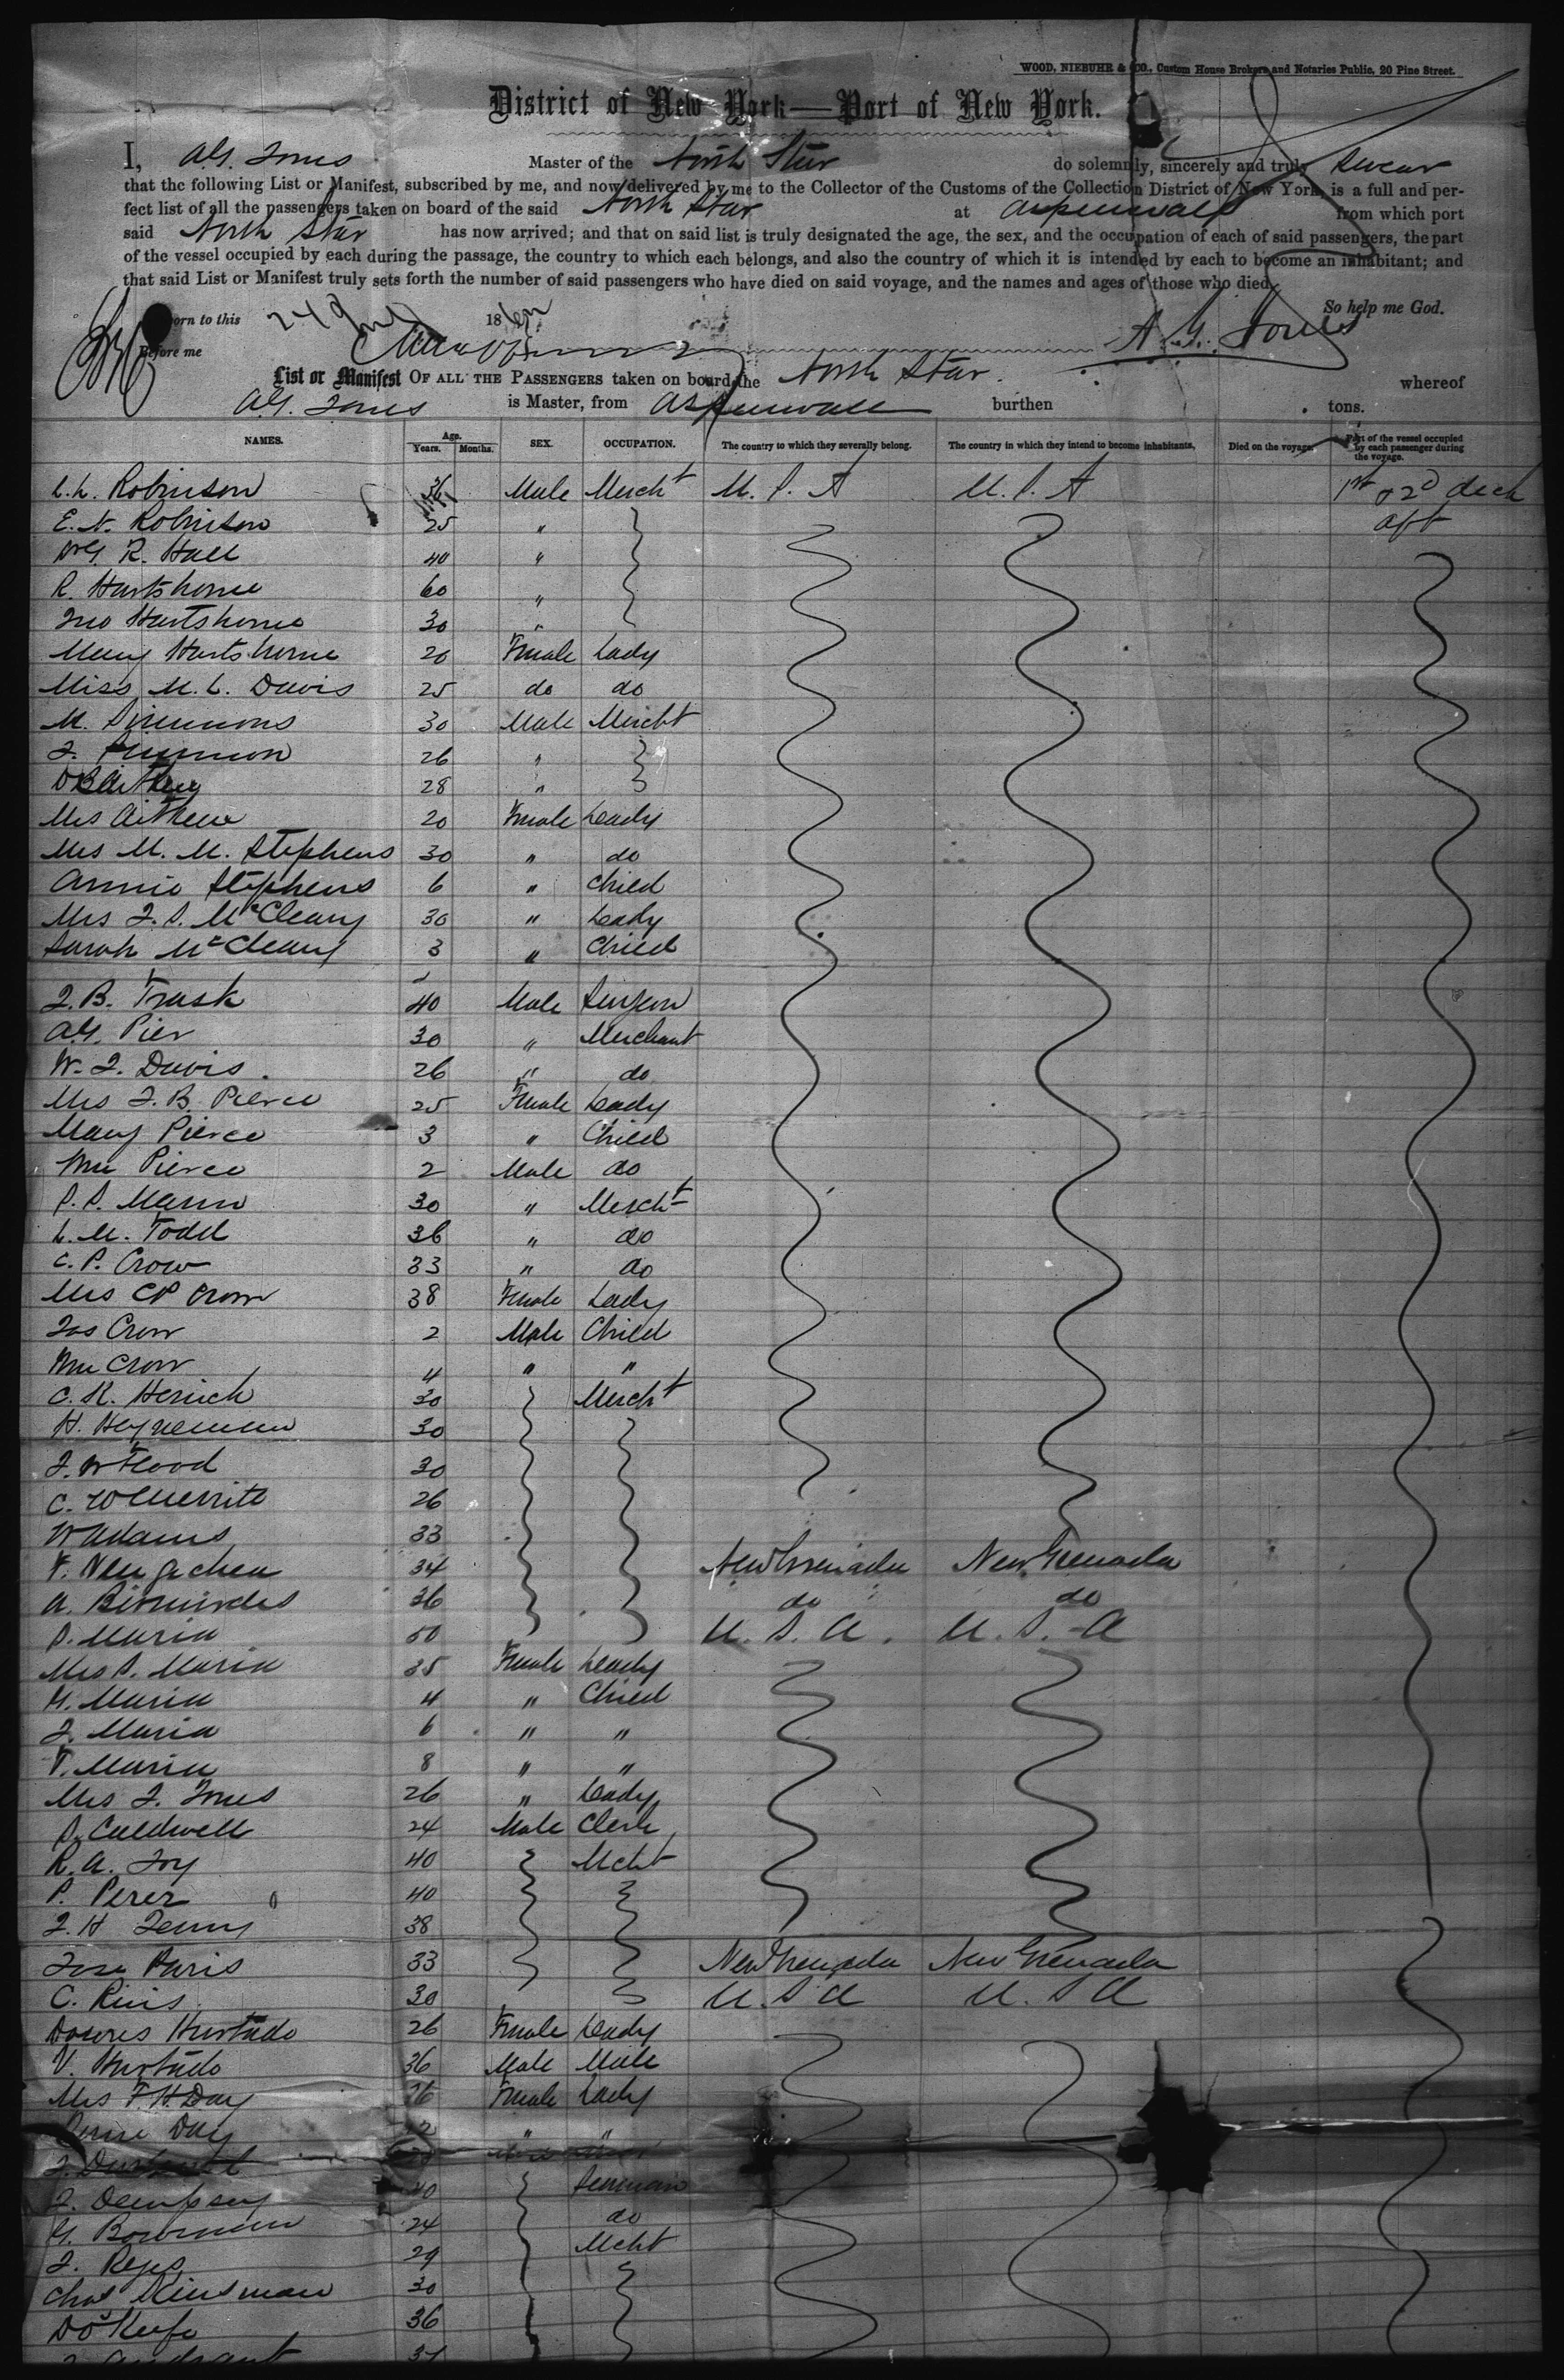 WOOD, NIEBUHR & CO., Custom House Brokers and Notaries Public, 20 Pine Street.
District of New York—Port of New York.
I, A.G. Jones Master of the North Star do solemnly, sincerely and truly swear
that the following List or Manifest, subscribed by me, and now delivered by me to the Collector of the Customs of the Collection District of New York, is a full and per-
fect list of all the passengers taken on board of the said North Star at Aspinwall from which port
said North Star has now arrived; and that on said list is truly designated the age, the sex, and the occupation of each of said passengers, the part
of the vessel occupied by each during the passage, the country to which each belongs, and also the country of which it is intended by each to become an inhabitant; and
that said List or Manifest truly sets forth the number of said passengers who have died on said voyage, and the names and ages of those who died.
So help me God.
orn to this 24 18
Before me A. G. Jones
List or Manifest OF ALL THE PASSENGERS taken on board the North Star whereof
A.G. Jones is Master, from Aspinwall burthen tons.
NAMES. Age. Years. Months. SEX. OCCUPATION. The country to which they severally belong. The country in which they intend to become inhabitants. Died on the voyage. Part of the vessel occupied by each passenger during the voyage.
L.L. Robinson 36 Male Mercht U.S.A U.S.A 1st & 2d deck
E. N. Robinson 25 " aft
R. Hall 40 "
R. Hartshorne 60 "
Jno Hartshorne 30 "
Mary Hartshorne 20 Female Lady
Miss M. L. Davis 25 do do
M. Simmons 30 Male Mercht
J. 26 "
D B Aitken 28 "
Mrs Aitken 20 Female Lady
Mrs M. M. Stephens 30 " do
Annie Stephens 6 " Child
Mrs J. S. McCleary 30 " Lady
Sarah McCleary 3 " Child
J. B. Trask 40 Male Surgeon
A.G. Pier 30 " Merchant
W. J. Davis 26 " do
Mrs J. B. Pierce 25 Female Lady
Mary Pierce 3 " Child
Wm Pierce 2 Male do
S. S. Mann 30 " Mercht
L. M. Todd 36 " do
C. P. Crow 33 " do
Mrs CP Crow 38 Female Lady
Jas Crow 2 Male Child
Wm Crow 4 " "
C. R. 30 Mercht
H. Heynemann 30
J. W Flood 30
C. W Merrite 26
W Adams 33
F. 34 New Grenada New Grenada
A. 36 do do
S. Maria 50 U. S. A. U. S. A
Mrs S. Maria 35 Female Lady
G. Maria 4 " Child
J. Maria 6 " "
T. Maria 8 " "
Mrs J. Jones 26 " Lady
S. Caldwell 24 Male Clerk
R. A. Joy 40 Mcht
P. Perez 40
J. H 38
Jose Paris 33 New Grenada New Grenada
C. 30 U. S A U. S A
Hurtado 26 Female Lady
V. Hurtado 36 Male Male
Mrs F. H. Day 26 Female Lady
Day 2 " "
J.
J. Dempsey 40 Seaman
G. Bowman 24 do
J. Reyes 29 Mcht
Chas Kinsman 30
D O'Keefe 36